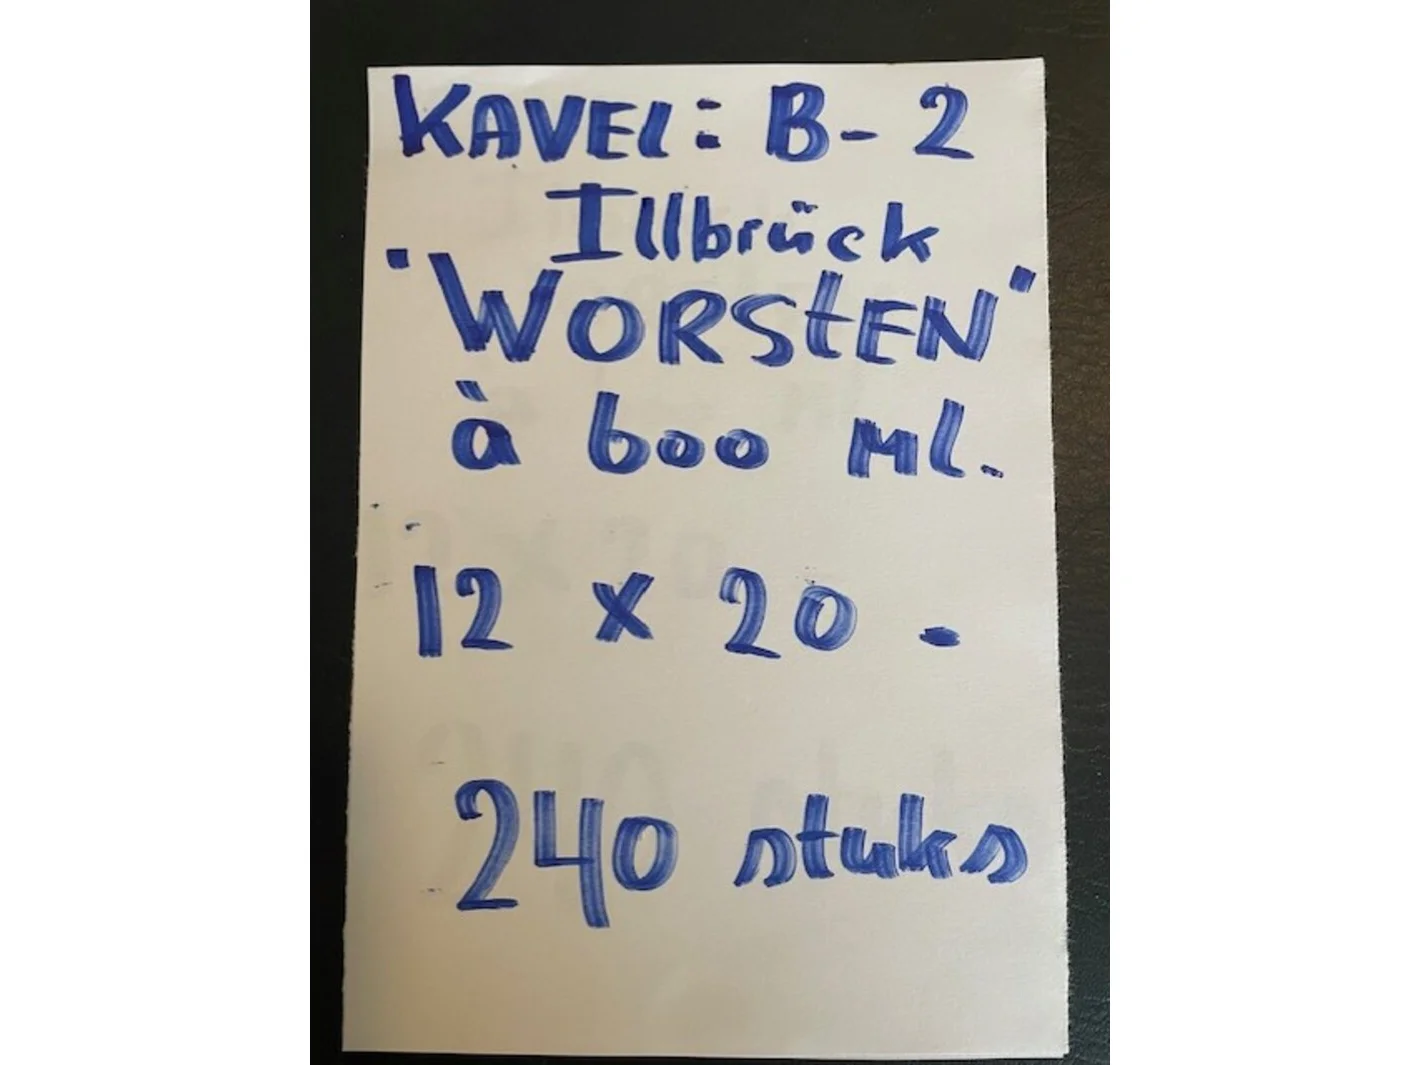 KAVEL: B-2
Illbrück
"WORSTEN"
à 600 ml.
12 x 20.
240 stuks